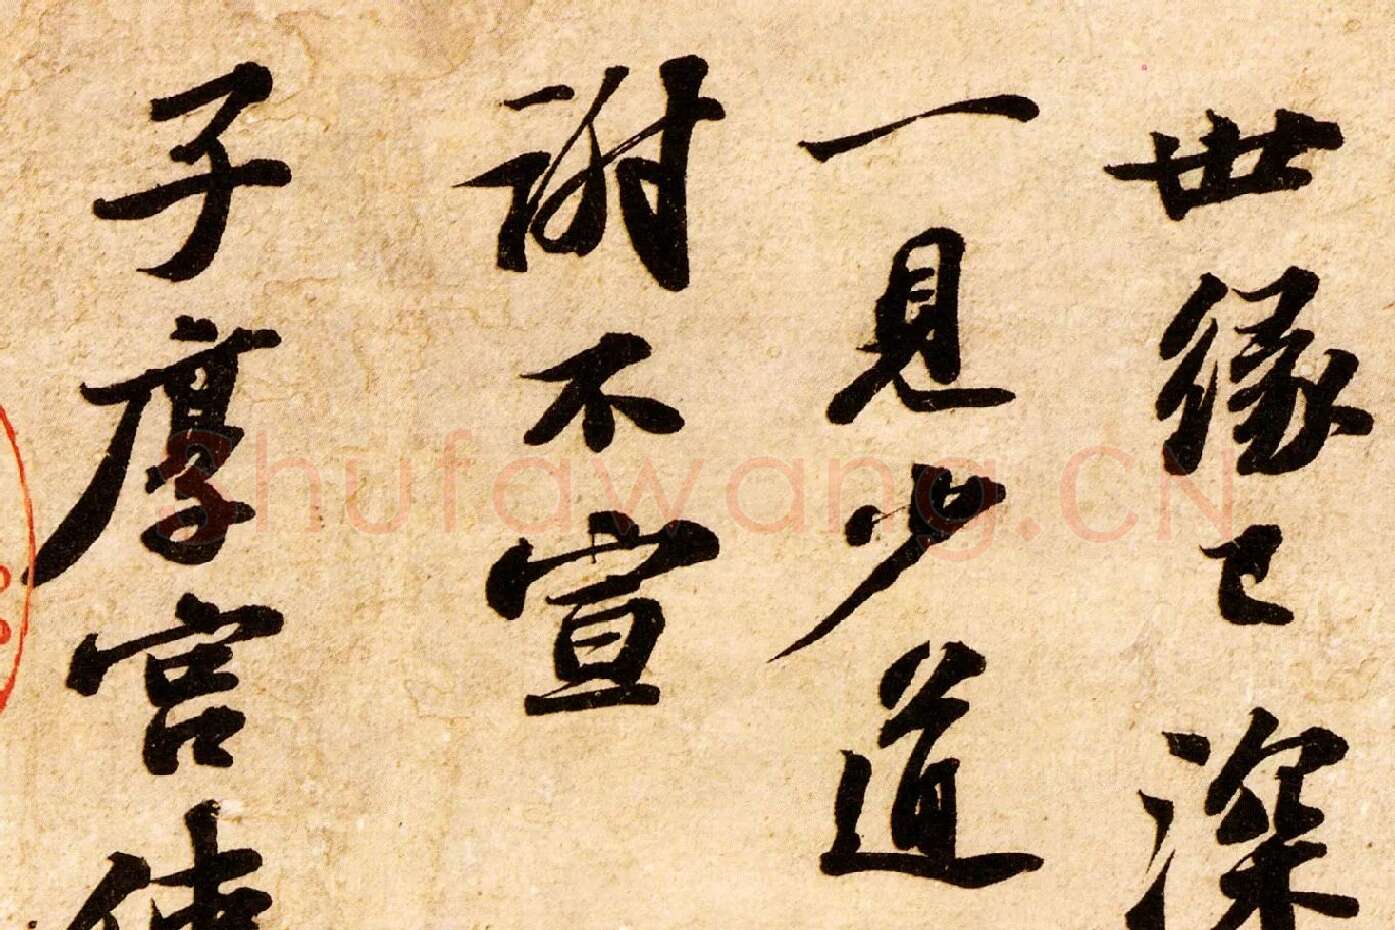 世缘已深
一见少道
谢不宣
子厚宫使
Shufawang.CN